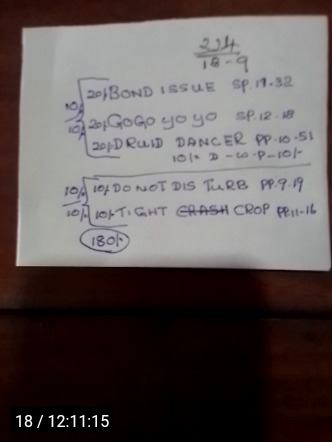 224
18-9
20/- BOND ISSUE SP.17.32
10/-
10/- 20/- GOGO YO YO SP.12.18
20/- DRUID DANCER PP.10.51
10/- D-W-P-10/-
10/- 10/- DO NOT DISTURB PP.9.19
10/- 10/- TIGHT CRASH CROP PP.11-16
180/-
18 / 12:11:15